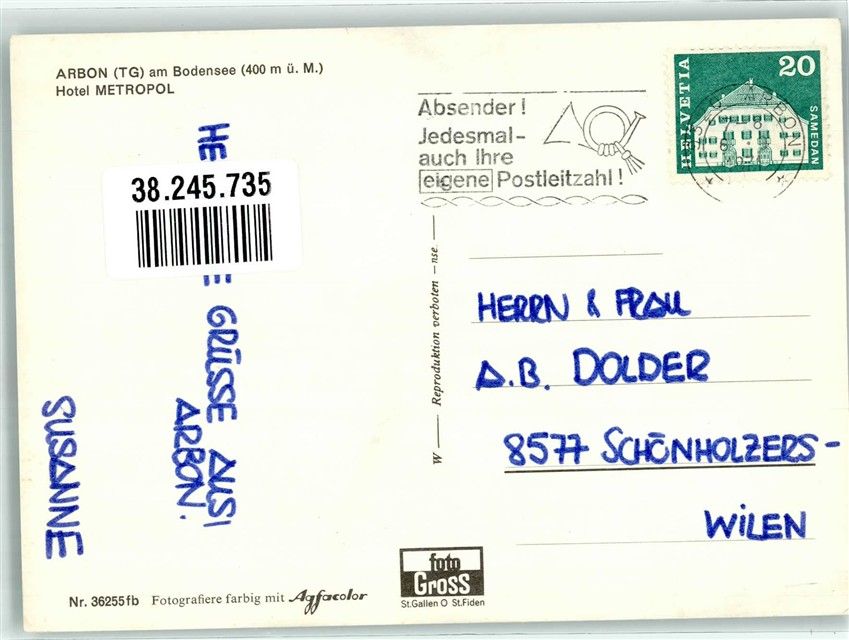 ARBON (TG) am Bodensee (400 m ü. M.)
Hotel METROPOL
GRÜSSE AUS
ARBON.
SUSANNE
38.245.735
Absender!
Jedesmal-
auch Ihre
eigene Postleitzahl!
HELVETIA
20
SAMEDAN
ARBON
W — Reproduktion verboten – nse —
HERRN & FRAU
A.B. DOLDER
8577 SCHÖNHOLZERS-
WILEN
foto
Gross
St.Gallen O St.Fiden
Nr. 36255fb Fotografiere farbig mit Agfacolor